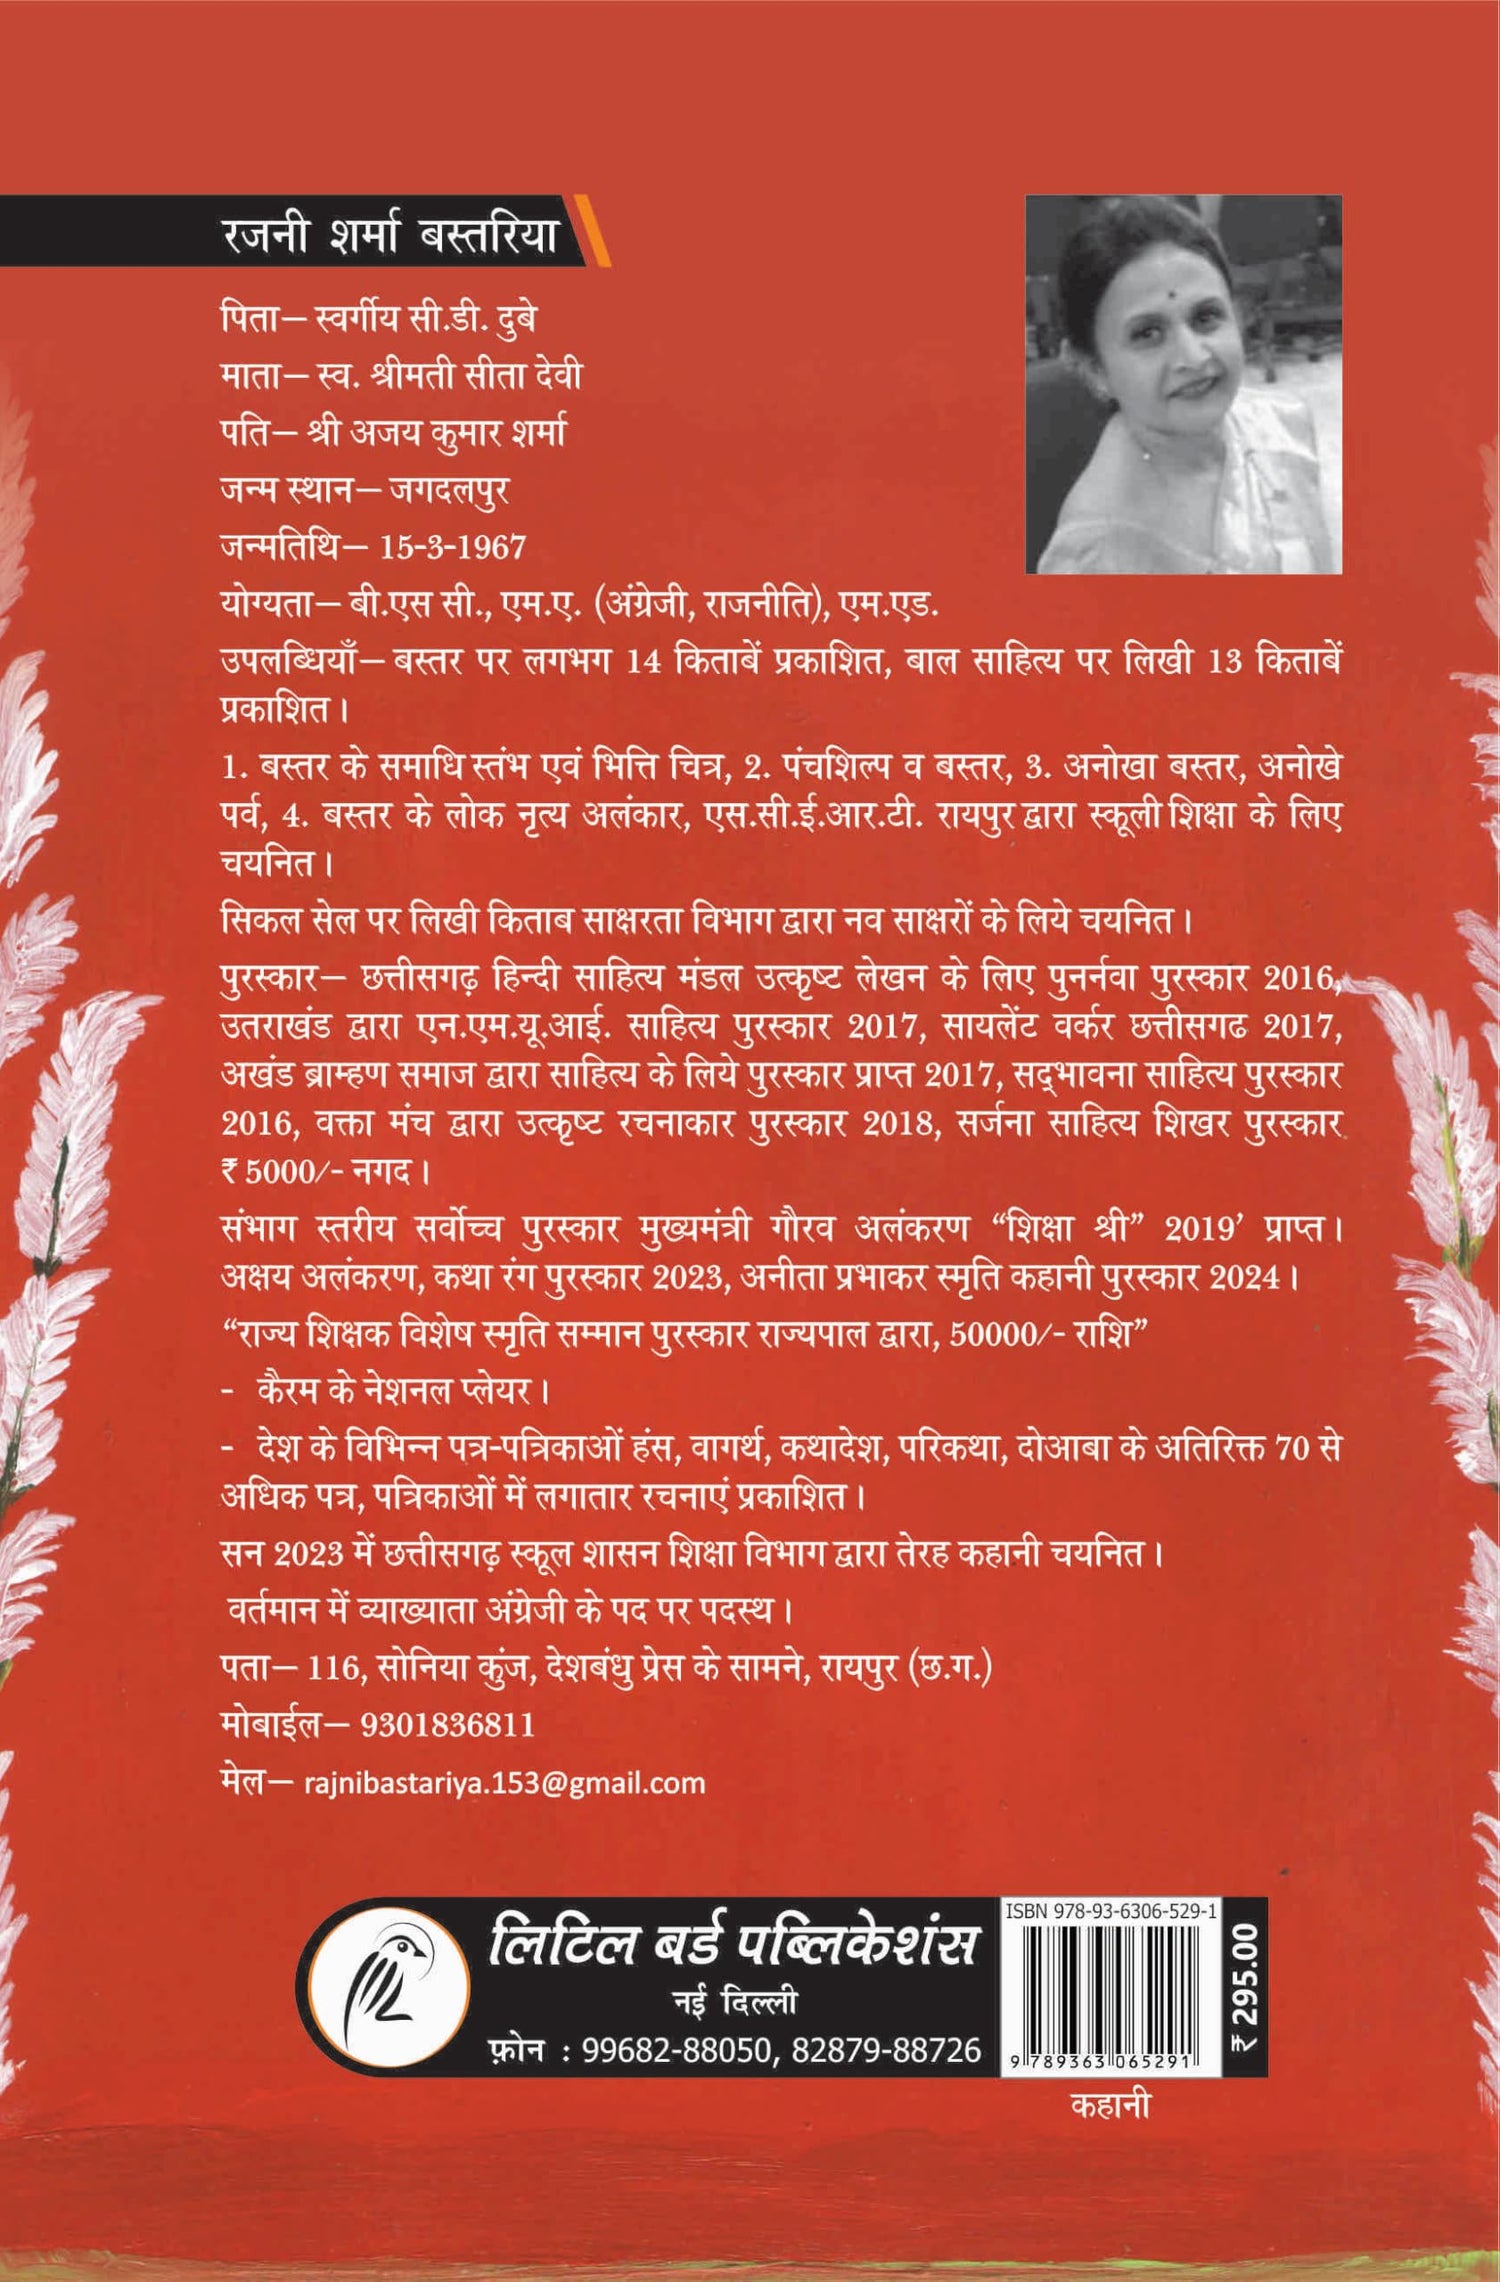 रजनी शर्मा बस्तरिया
पिता— स्वर्गीय सी.डी. दुबे
माता— स्व. श्रीमती सीता देवी
पति— श्री अजय कुमार शर्मा
जन्म स्थान— जगदलपुर
जन्मतिथि— 15-3-1967
योग्यता— बी.एस सी., एम.ए. (अंग्रेजी, राजनीति), एम.एड.
उपलब्धियाँ— बस्तर पर लगभग 14 किताबें प्रकाशित, बाल साहित्य पर लिखी 13 किताबें
प्रकाशित।
1. बस्तर के समाधि स्तंभ एवं भित्ति चित्र, 2. पंचशिल्प व बस्तर, 3. अनोखा बस्तर, अनोखे
पर्व, 4. बस्तर के लोक नृत्य अलंकार, एस.सी.ई.आर.टी. रायपुर द्वारा स्कूली शिक्षा के लिए
चयनित।
सिकल सेल पर लिखी किताब साक्षरता विभाग द्वारा नव साक्षरों के लिये चयनित।
पुरस्कार— छत्तीसगढ़ हिन्दी साहित्य मंडल उत्कृष्ट लेखन के लिए पुनर्नवा पुरस्कार 2016,
उतराखंड द्वारा एन.एम.यू.आई. साहित्य पुरस्कार 2017, सायलेंट वर्कर छत्तीसगढ 2017,
अखंड ब्राम्हण समाज द्वारा साहित्य के लिये पुरस्कार प्राप्त 2017, सद्‌भावना साहित्य पुरस्कार
2016, वक्ता मंच द्वारा उत्कृष्ट रचनाकार पुरस्कार 2018, सर्जना साहित्य शिखर पुरस्कार
₹ 5000/- नगद।
संभाग स्तरीय सर्वोच्च पुरस्कार मुख्यमंत्री गौरव अलंकरण “शिक्षा श्री” 2019’ प्राप्त।
अक्षय अलंकरण, कथा रंग पुरस्कार 2023, अनीता प्रभाकर स्मृति कहानी पुरस्कार 2024।
“राज्य शिक्षक विशेष स्मृति सम्मान पुरस्कार राज्यपाल द्वारा, 50000/- राशि”
- कैरम के नेशनल प्लेयर।
- देश के विभिन्न पत्र-पत्रिकाओं हंस, वागर्थ, कथादेश, परिकथा, दोआबा के अतिरिक्त 70 से
अधिक पत्र, पत्रिकाओं में लगातार रचनाएं प्रकाशित।
सन 2023 में छत्तीसगढ़ स्कूल शासन शिक्षा विभाग द्वारा तेरह कहानी चयनित।
वर्तमान में व्याख्याता अंग्रेजी के पद पर पदस्थ।
पता— 116, सोनिया कुंज, देशबंधु प्रेस के सामने, रायपुर (छ.ग.)
मोबाईल— 9301836811
मेल— rajnibastariya.153@gmail.com
लिटिल बर्ड पब्लिकेशंस
नई दिल्ली
फ़ोन : 99682-88050, 82879-88726
ISBN 978-93-6306-529-1
9 789363 065291
₹ 295.00
कहानी